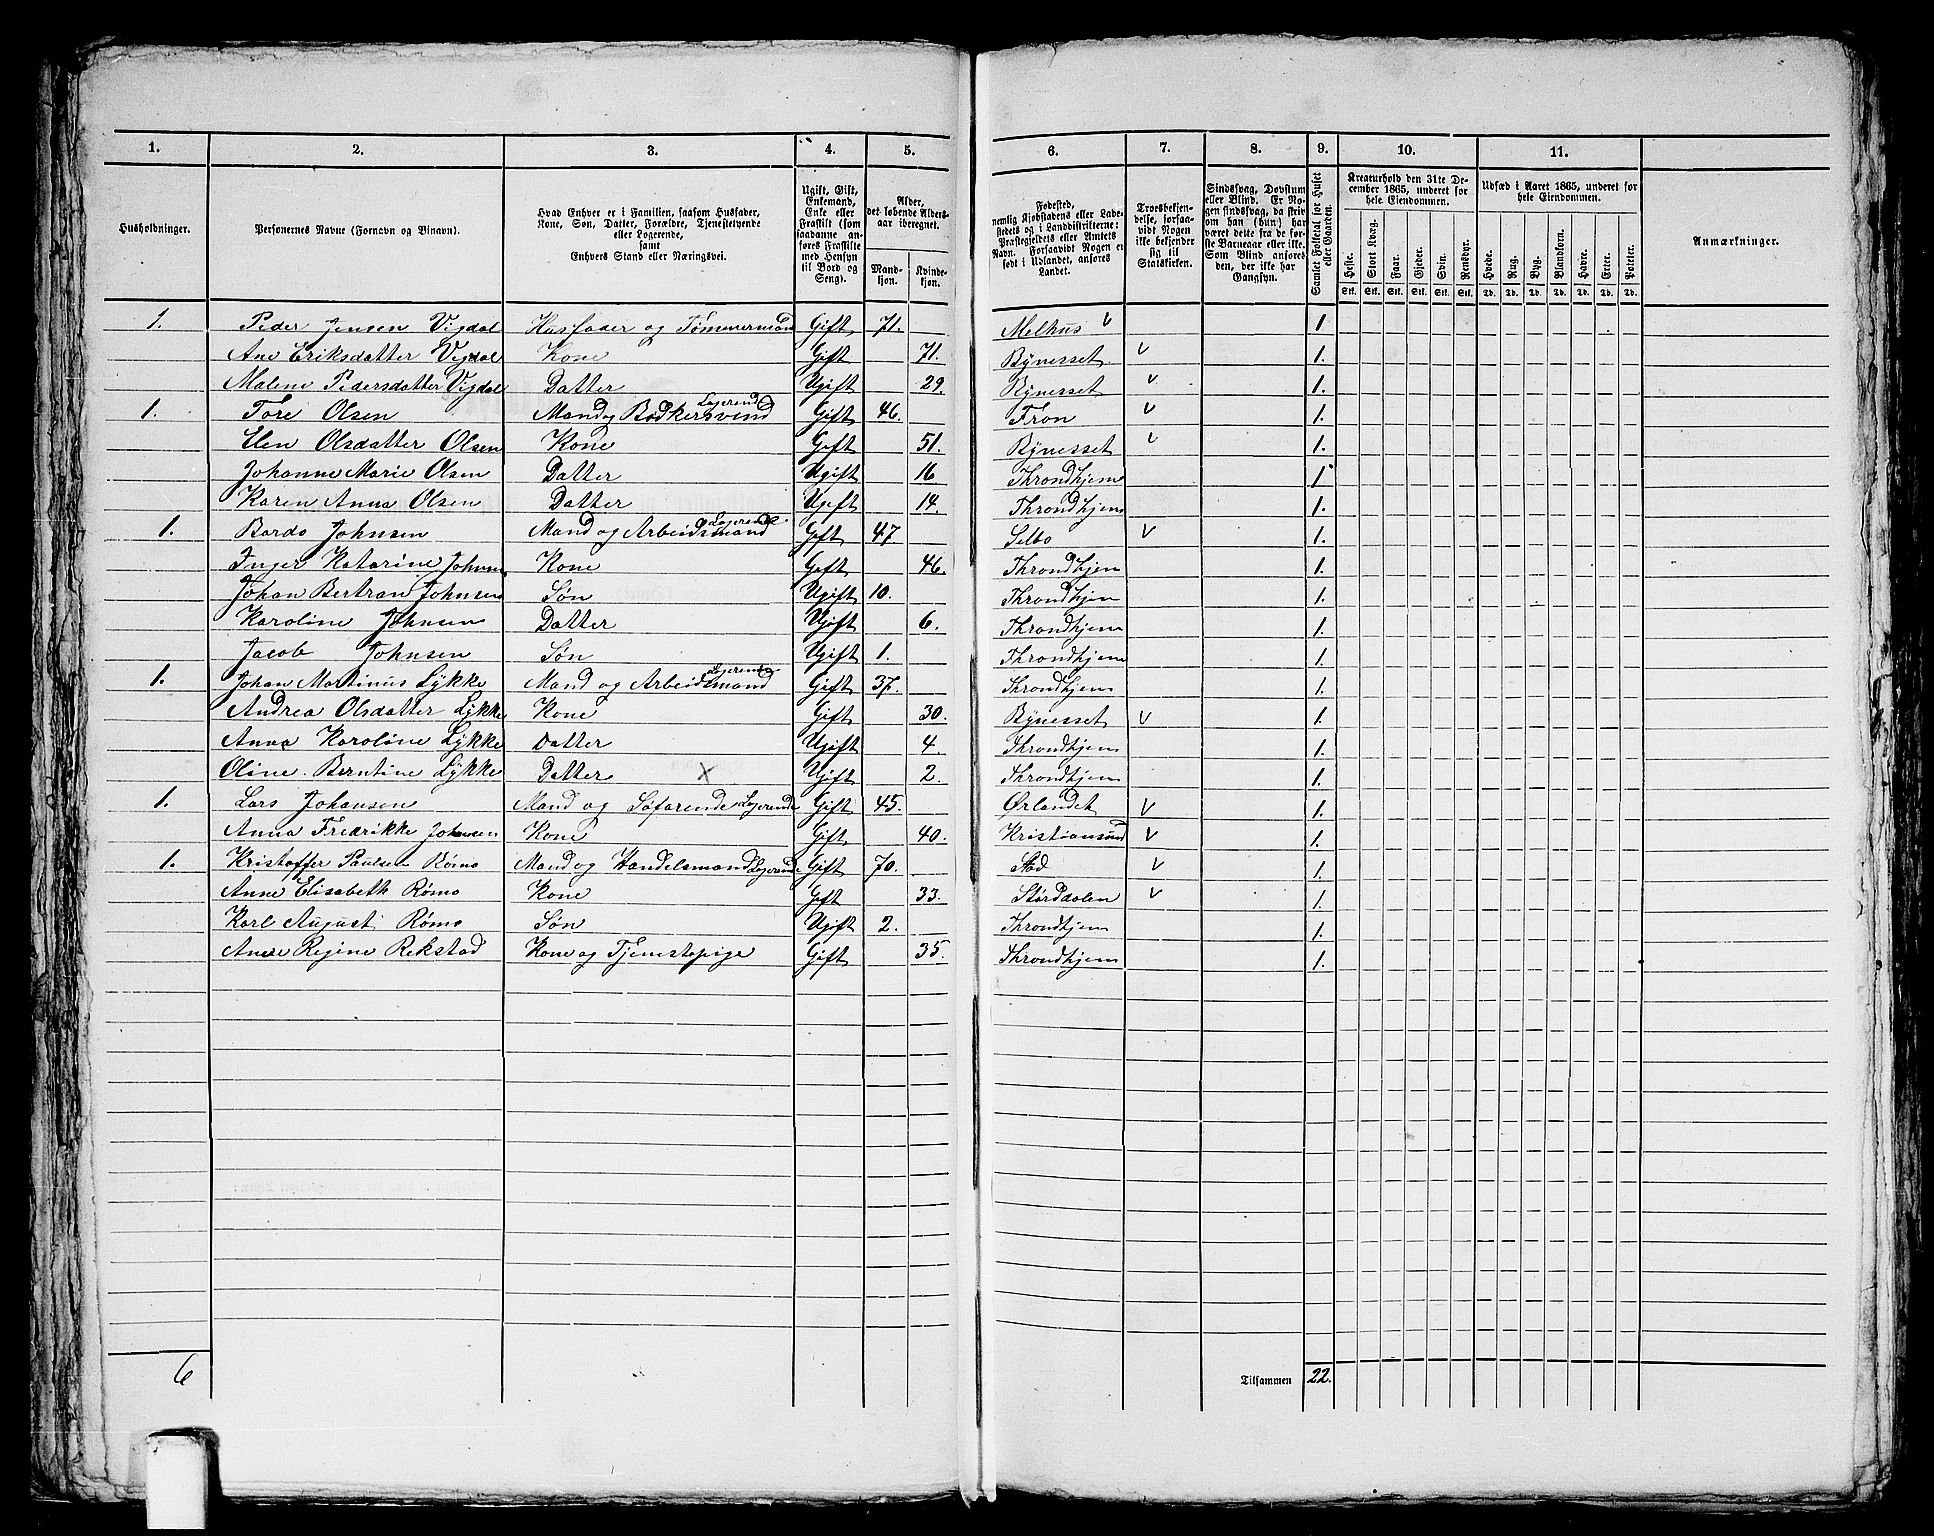 1. 2. 3. 4. 5. 6. 7. 8. 9. 10. 11.
Husholdninger.
Personernes Navne (Fornavn og Binavn).
Hvad Enhver er i Familien, saasom Husfader,
Kone, Søn, Datter, Forældre, Tjenestetyende
eller Logerende,
samt
Enhvers Stand eller Næringsvei.
Ugift, Gift,
Enkemand,
Enke eller
Fraskilt (som
saadanne an-
føres Fraskilte
med Hensyn
til Bord og
Seng).
Alder,
det løbende Alders-
aar iberegnet.
Mand-
kjøn.
Kvinde-
kjøn.
Fødested,
nemlig Kjøbstadens eller Lade-
stedets og i Landdistrikterne:
Præstegjeldets eller Amtets
Navn. Forsaavidt Nogen er
født i Udlandet, anføres
Landet.
Troesbekjen-
delse, forsaa-
vidt Nogen
ikke bekjender
sig til
Statskirken.
Sindssvag, Døvstum
eller Blind. Er No-
gen sindssvag, da skriv
om han (hun) har
været dette fra de før-
ste Barneaar eller ikke.
Som Blind ansøres
den, der ikke har
Gangsyn.
Samlet Folketal for Huset
eller Gaarden.
Kreaturhold den 31te De-
cember 1865, underet for
hele Eiendommen.
Heste. Stort Kvæg. Faar. Gjeder. Svin. Rensdyr.
Stk. Stk. Stk. Stk. Stk. Stk.
Udsæd i Aaret 1865, underet for
hele Eiendommen.
Hvede. Rug. Byg. Blandkorn. Havre. Erter. Poteter.
Td. Td. Td. Td. Td. Td. Td.
Anmærkninger.
1. Peder Jensen Vigdal Husfader og Tømmermand Gift 71. Melhus v 1
Ane Eriksdatter Vigdal Kone Gift 71. Bynesset v 1.
Malene Pedersdatter Vigdal Datter Ugift 29. Bynesset v 1.
1. Tore Olsen Mand og Bødkersvend Logerend Gift 46. Fron v 1.
Elen Olsdatter Olsen Kone Gift 51. Bynesset v 1.
Johanne Marie Olsen Datter Ugift 16 Throndhjem 1
Karen Anna Olsen Datter Ugift 14. Throndhjem 1.
1. Bardo Johnsen Mand og Arbeidsmand Logerende Gift 47 Selbo v 1.
Inger Katarine Johnsen Kone Gift 46. Throndhjem 1.
Johan Bertran Johnsen Søn Ugift 10. Throndhjem 1.
Karoline Johnsen Datter Ugift 6. Throndhjem 1.
Jacob Johnsen Søn Ugift 1. Throndhjem 1.
1. Johan Martinus Lykke Mand og Arbeidsmand Logerende Gift 37. Throndhjem 1.
Andrea Olsdatter Lykke Kone Gift 30. Bynesset v 1.
Anna Karoline Lykke Datter Ugift 4. Throndhjem 1.
Oline Berntine Lykke Datter x Ugift 2. Throndhjem 1.
1. Lars Johansen Mand og Søfarende Logerende Gift 45. Ørlandet v 1.
Anna Fredrikke Johansen Kone Gift 40. Kristiansund v 1.
1. Kristoffer Paulsen Rømo Mand og Handelsmand Logerende Gift 70. Stod v 1.
Anne Elisabeth Rømo Kone Gift 33. Størddalen v 1.
Karl August Rømo Søn Ugift 2. Throndhjem 1.
Anne Regine Rekstad Kone og Tjenestepige Gift 35. Throndhjem 1.
6 Tilsammen 22.